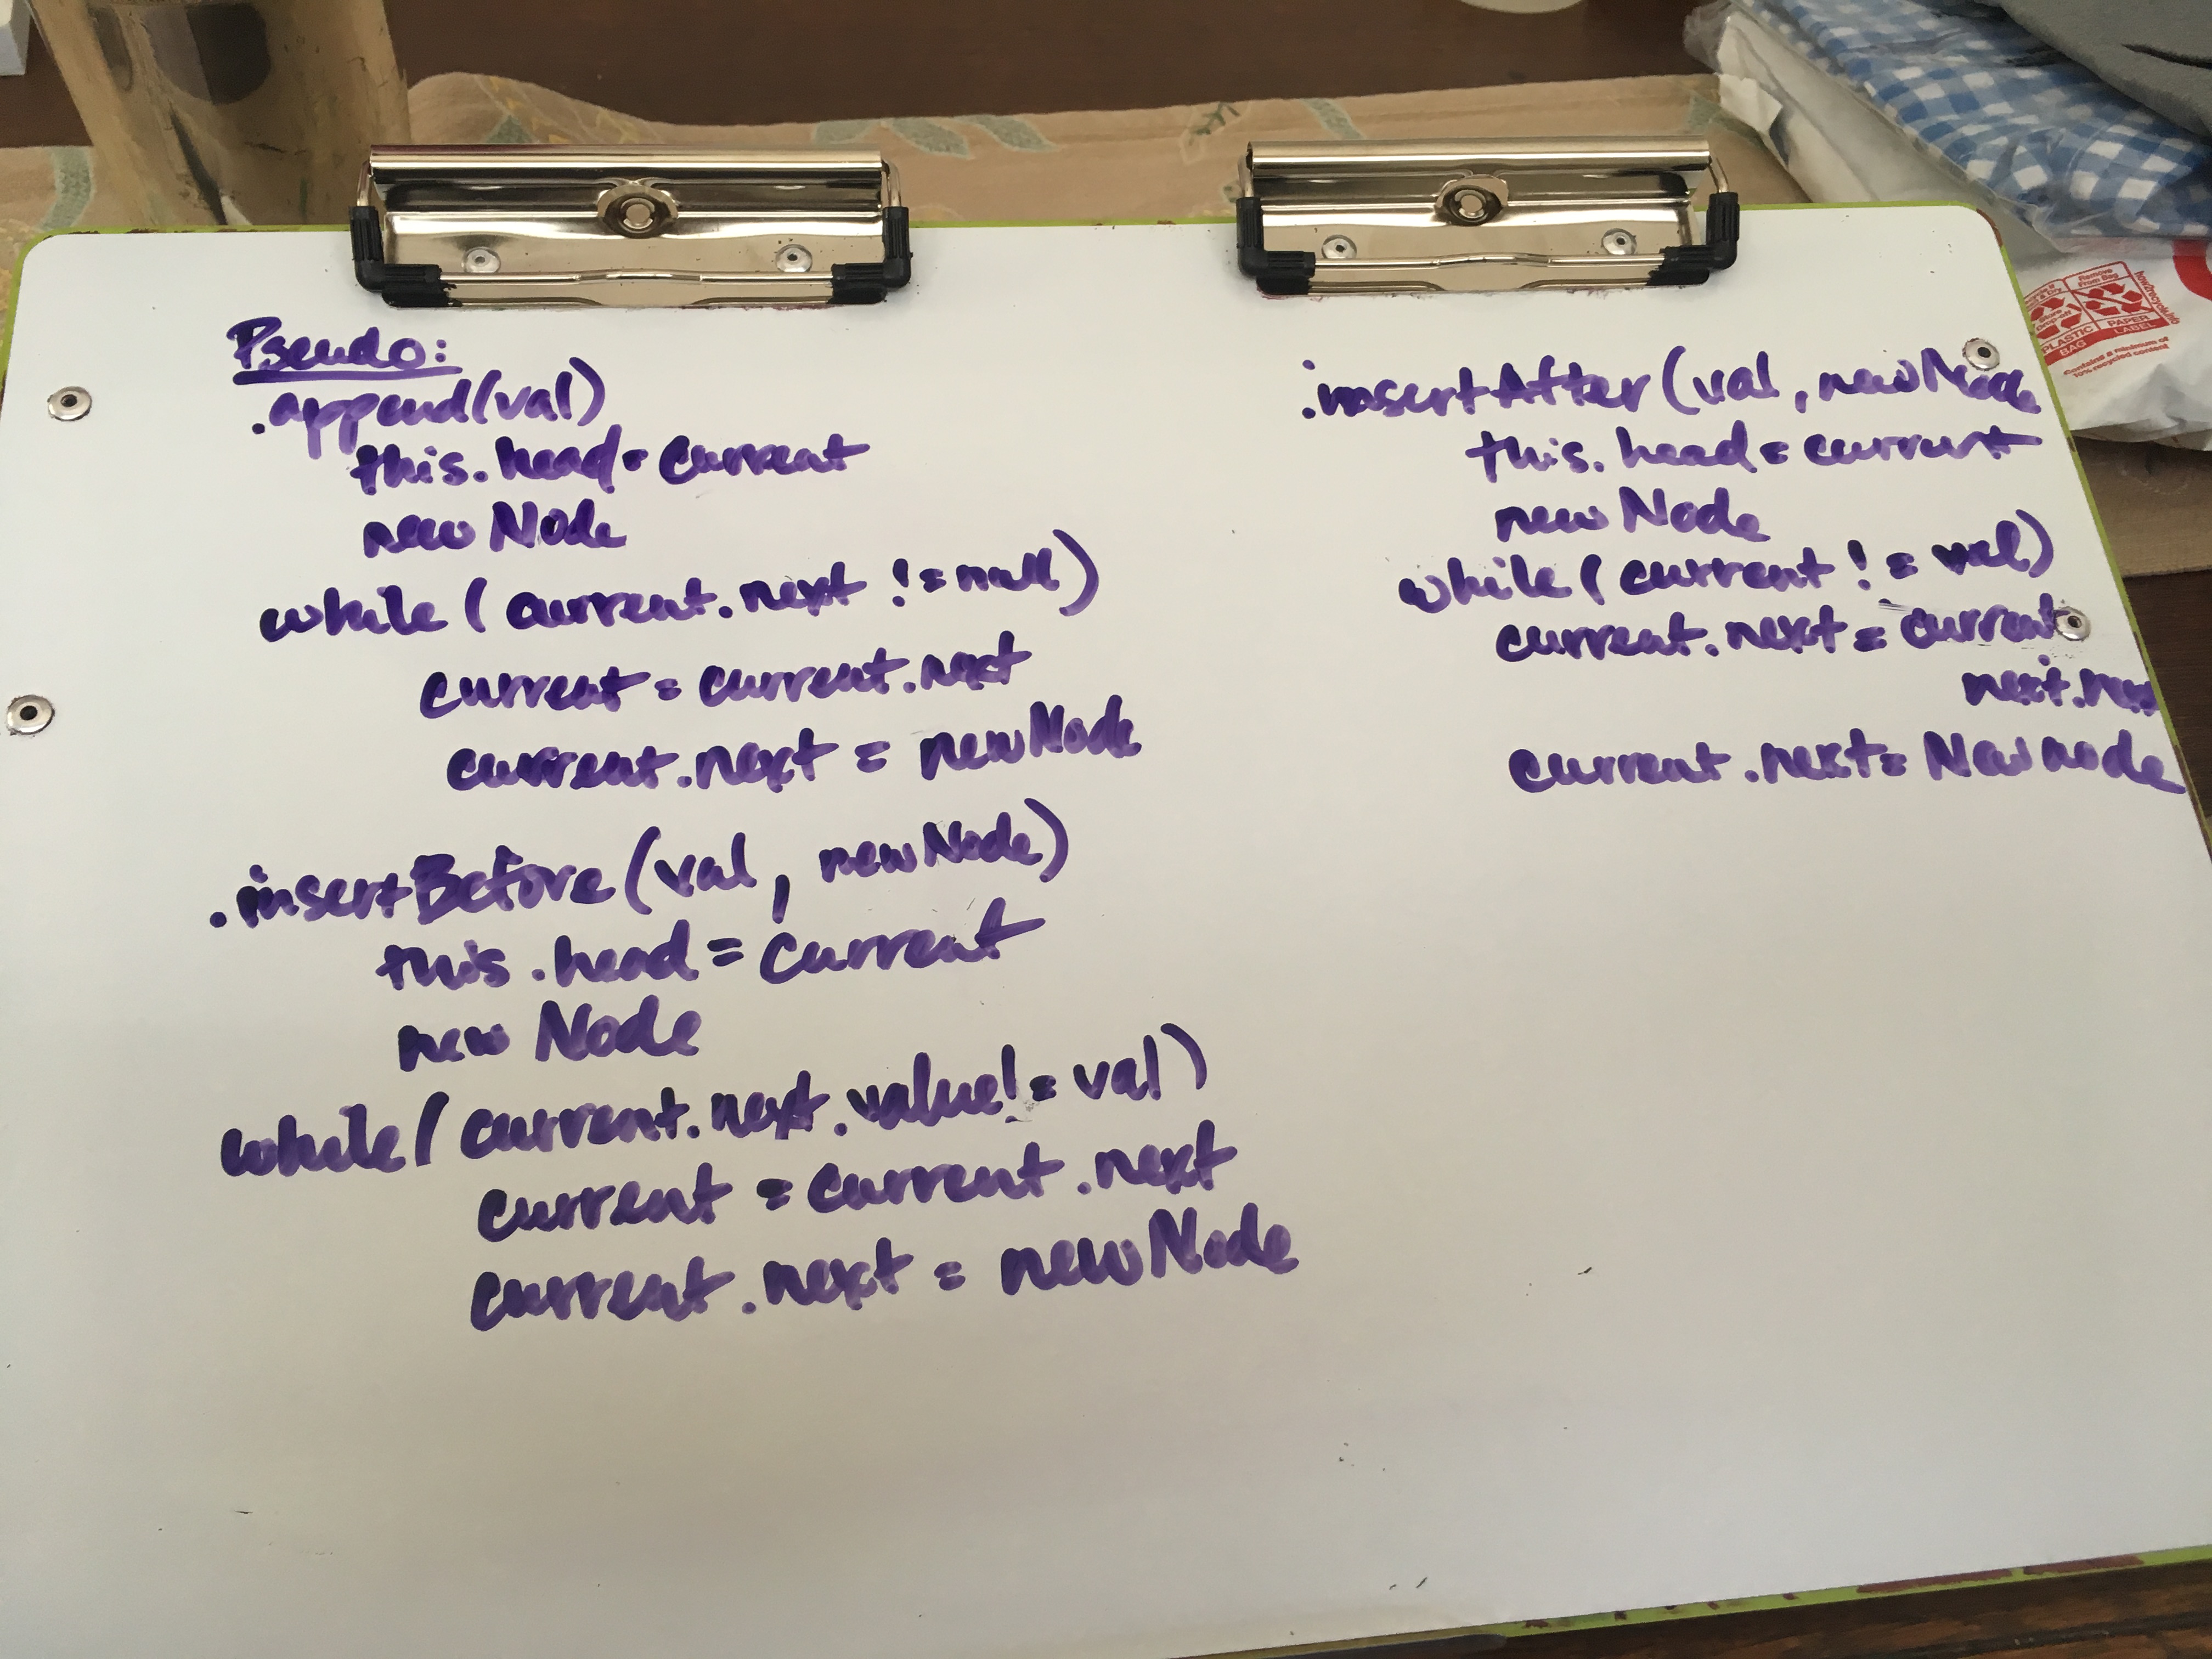 Pseudo:
.append(val)
this.head = current
new Node
while ( current.next != null)
current = current.next
current.next = newNode
.insertBefore(val, newNode)
this.head = current
new Node
while ( current.next.value != val)
current = current.next
current.next = newNode
.insertAfter (val, newNode
this.head = current
new Node
while ( current != val)
current.next = current
next.nex
current.next = Newnode
Remove
From Bag
Store
Drop-off
PLASTIC
BAG
PAPER
LABEL
how2recycle.info
Contains a minimum of
10% recycled content